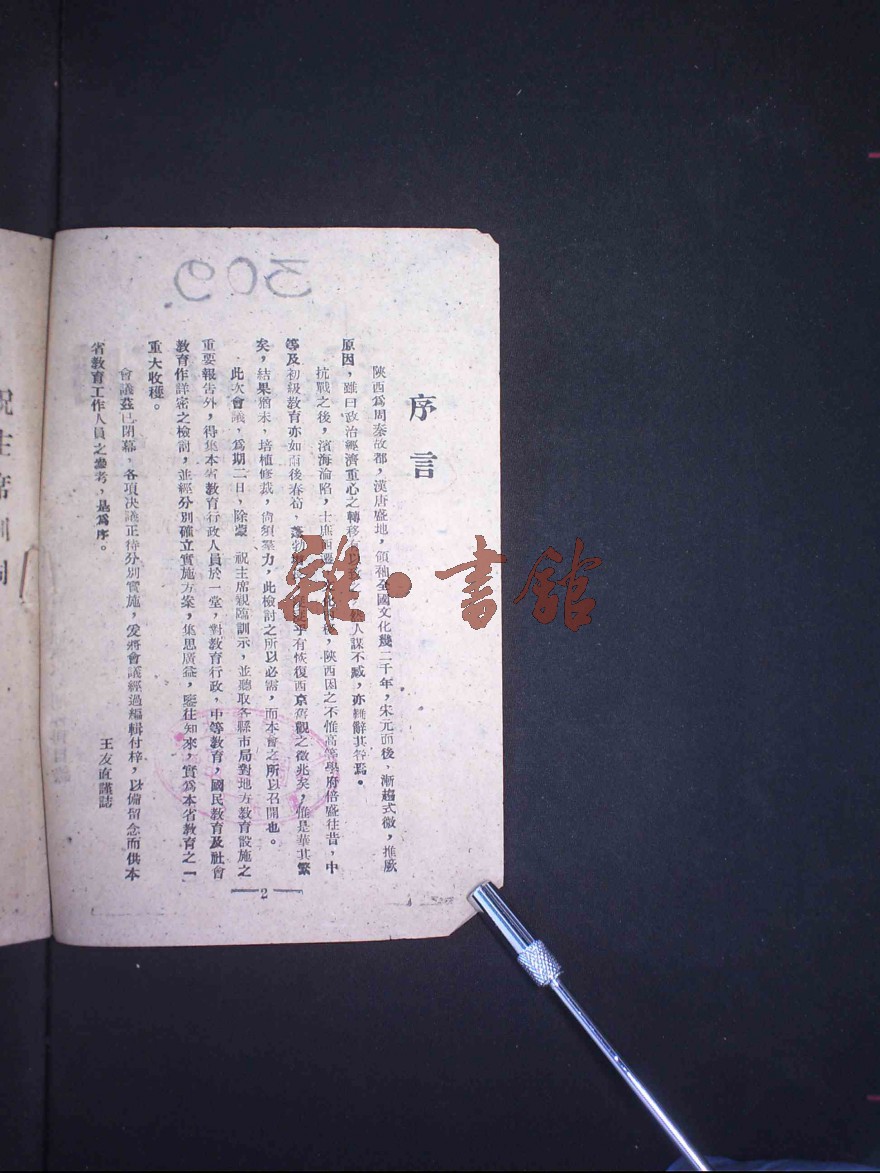 309
序言
陝西爲周秦故都，漢唐盛地，領袖全國文化幾二千年，宋元而後，漸趨式微，推厥
原因，雖曰政治經濟重心之轉移有以致之，人謀不臧，亦難辭其咎焉。
抗戰之後，濱海淪陷，士庶西遷，陝西因之不惟高等學府倍盛往昔，中
等及初級教育亦如雨後春筍，蓬勃乎有恢復西京舊觀之徵兆矣，惟是華其繁
矣，結果猶未，培植修裁，尙須羣力，此檢討之所以必需，而本會之所以召開也。
此次會議，爲期二日，除蒙　祝主席親臨訓示，並聽取各縣市局對地方教育設施之
重要報告外，得集本省教育行政人員於一堂，對教育行政，中等教育，國民教育及社會
教育作詳密之檢討，並經分別確立實施方案，集思廣益，鑒往知來，實爲本省教育之一
重大收穫。
會議茲已閉幕，各項決議正待分別實施，爰將會議經過編輯付梓，以備留念而供本
省教育工作人員之參考，是爲序。
王友直謹誌
2
祝主席訓詞
雜·書館